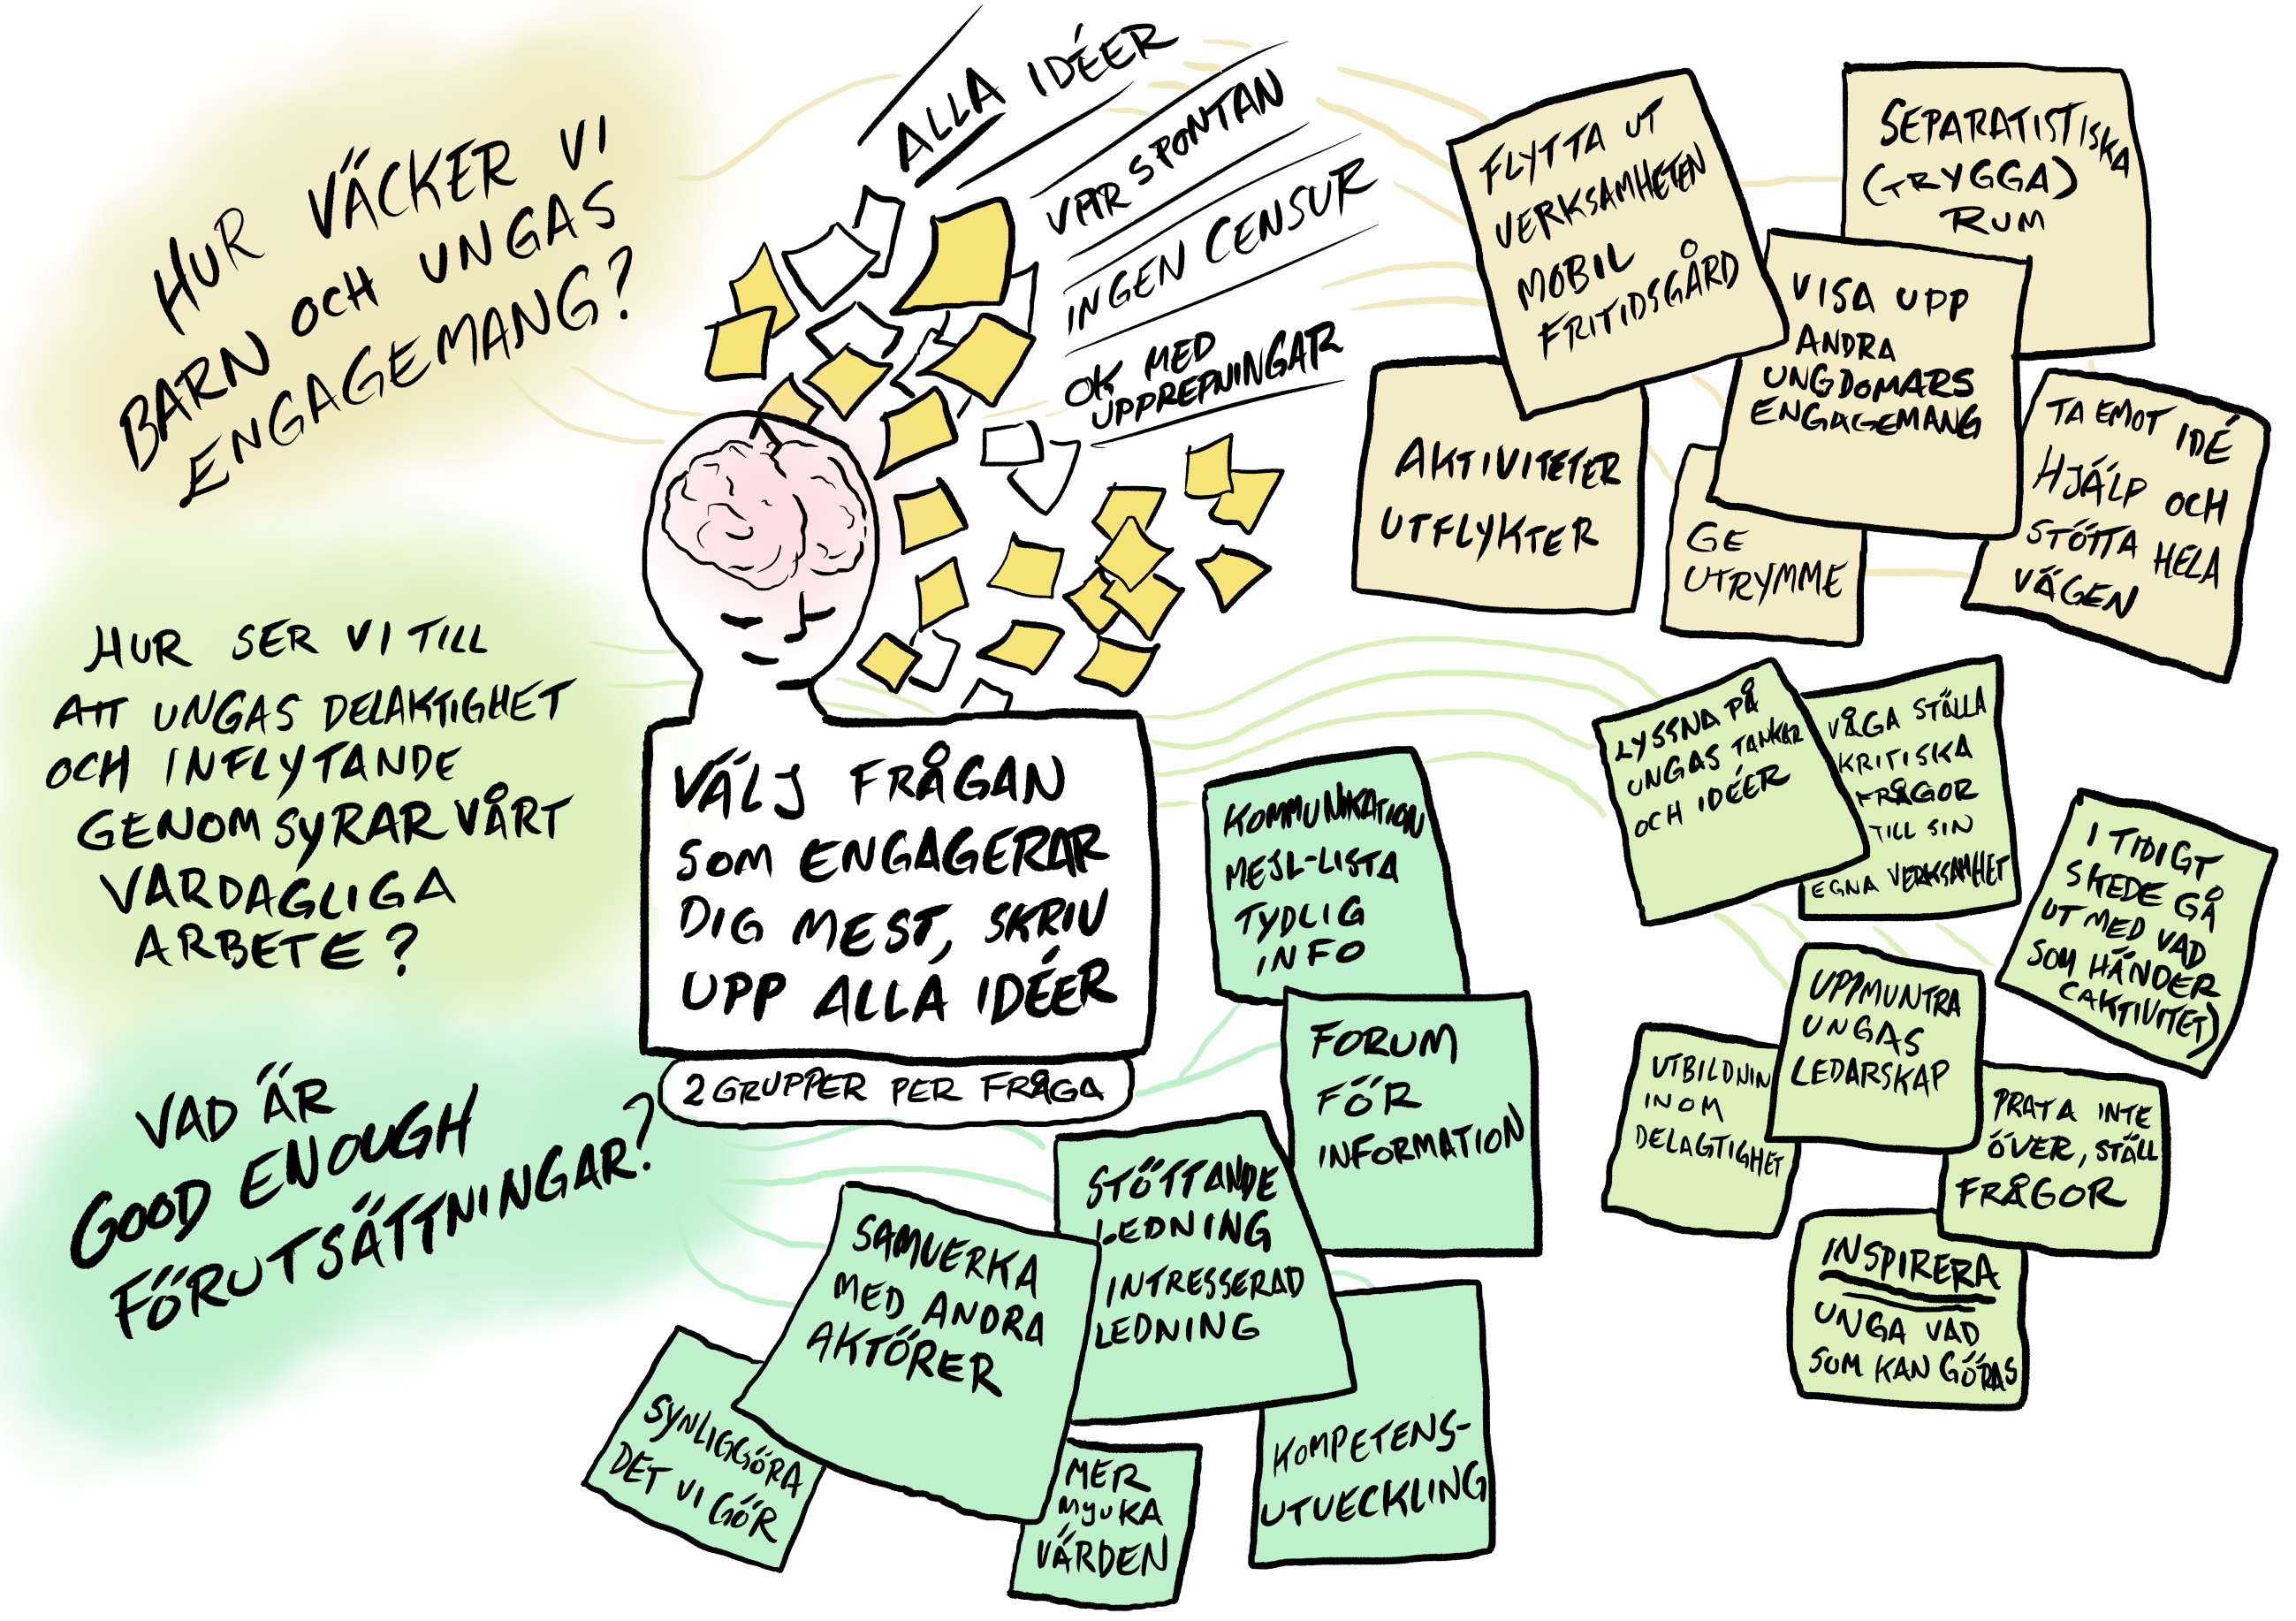 HUR VÄCKER VI
BARN OCH UNGAS
ENGAGEMANG?
HUR SER VI TILL
ATT UNGAS DELAKTIGHET
OCH INFLYTANDE
GENOMSYRAR VÅRT
VARDAGLIGA
ARBETE?
VAD ÄR
GOOD ENOUGH
FÖRUTSÄTTNINGAR?
ALLA IDÉER
VAR SPONTAN
INGEN CENSUR
OK MED
UPPREPNINGAR
VÄLJ FRÅGAN
SOM ENGAGERAR
DIG MEST, SKRIV
UPP ALLA IDÉER
2 GRUPPER PER FRÅGA
FLYTTA UT
VERKSAMHETEN
MOBIL
FRITIDSGÅRD
SEPARATISTISKA
(TRYGGA)
RUM
VISA UPP
ANDRA
UNGDOMARS
ENGAGEMANG
AKTIVITETER
UTFLYKTER
GE
UTRYMME
TA EMOT IDÉ
HJÄLP OCH
STÖTTA HELA
VÄGEN
LYSSNA PÅ
UNGAS TANKAR
OCH IDÉER
VÅGA STÄLLA
KRITISKA
FRÅGOR
TILL SIN
EGNA VERKSAMHET
I TIDIGT
SKEDE GÅ
UT MED VAD
SOM HÄNDER
(AKTIVITET)
UPPMUNTRA
UNGAS
LEDARSKAP
UTBILDNIN
INOM
DELAGTIGHET
PRATA INTE
ÖVER, STÄLL
FRÅGOR
INSPIRERA
UNGA VAD
SOM KAN GÖRAS
KOMMUNIKATION
MEJL-LISTA
TYDLIG
INFO
FORUM
FÖR
INFORMATION
STÖTTANDE
LEDNING
INTRESSERAD
LEDNING
SAMVERKA
MED ANDRA
AKTÖRER
SYNLIGGÖRA
DET VI GÖR
MER
MJUKA
VÄRDEN
KOMPETENS-
UTVECKLING